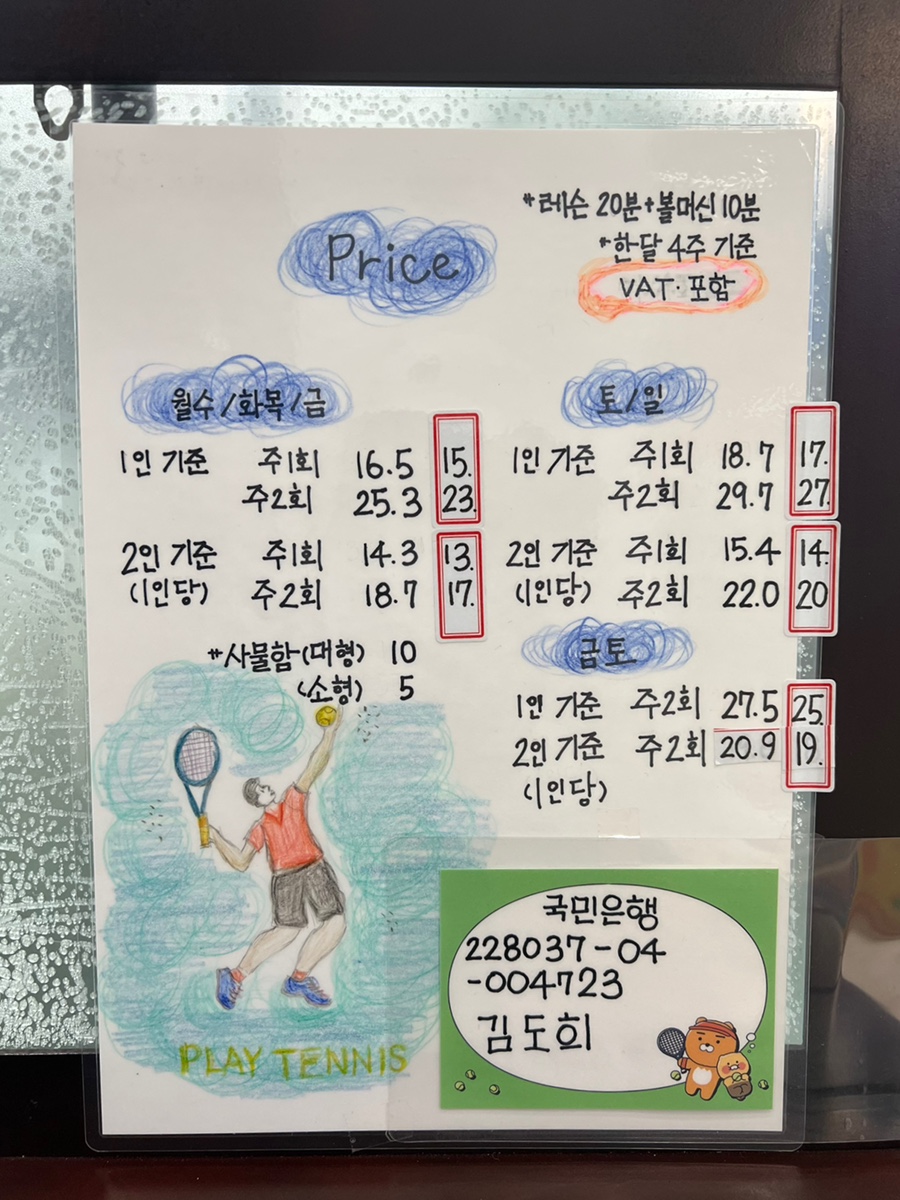 Price
*레슨 20분+볼머신 10분
*한달 4주 기준
VAT·포함
월수/화목/금
1인 기준 주1회 16.5 15.
주2회 25.3 23.
2인 기준 주1회 14.3 13.
(1인당) 주2회 18.7 17.
*사물함(대형) 10
(소형) 5
토/일
1인 기준 주1회 18.7 17.
주2회 29.7 27.
2인 기준 주1회 15.4 14.
(1인당) 주2회 22.0 20
금토
1인 기준 주2회 27.5 25.
2인 기준 주2회 20.9 19.
(1인당)
PLAY TENNIS
국민은행
228037-04
-004723
김도희